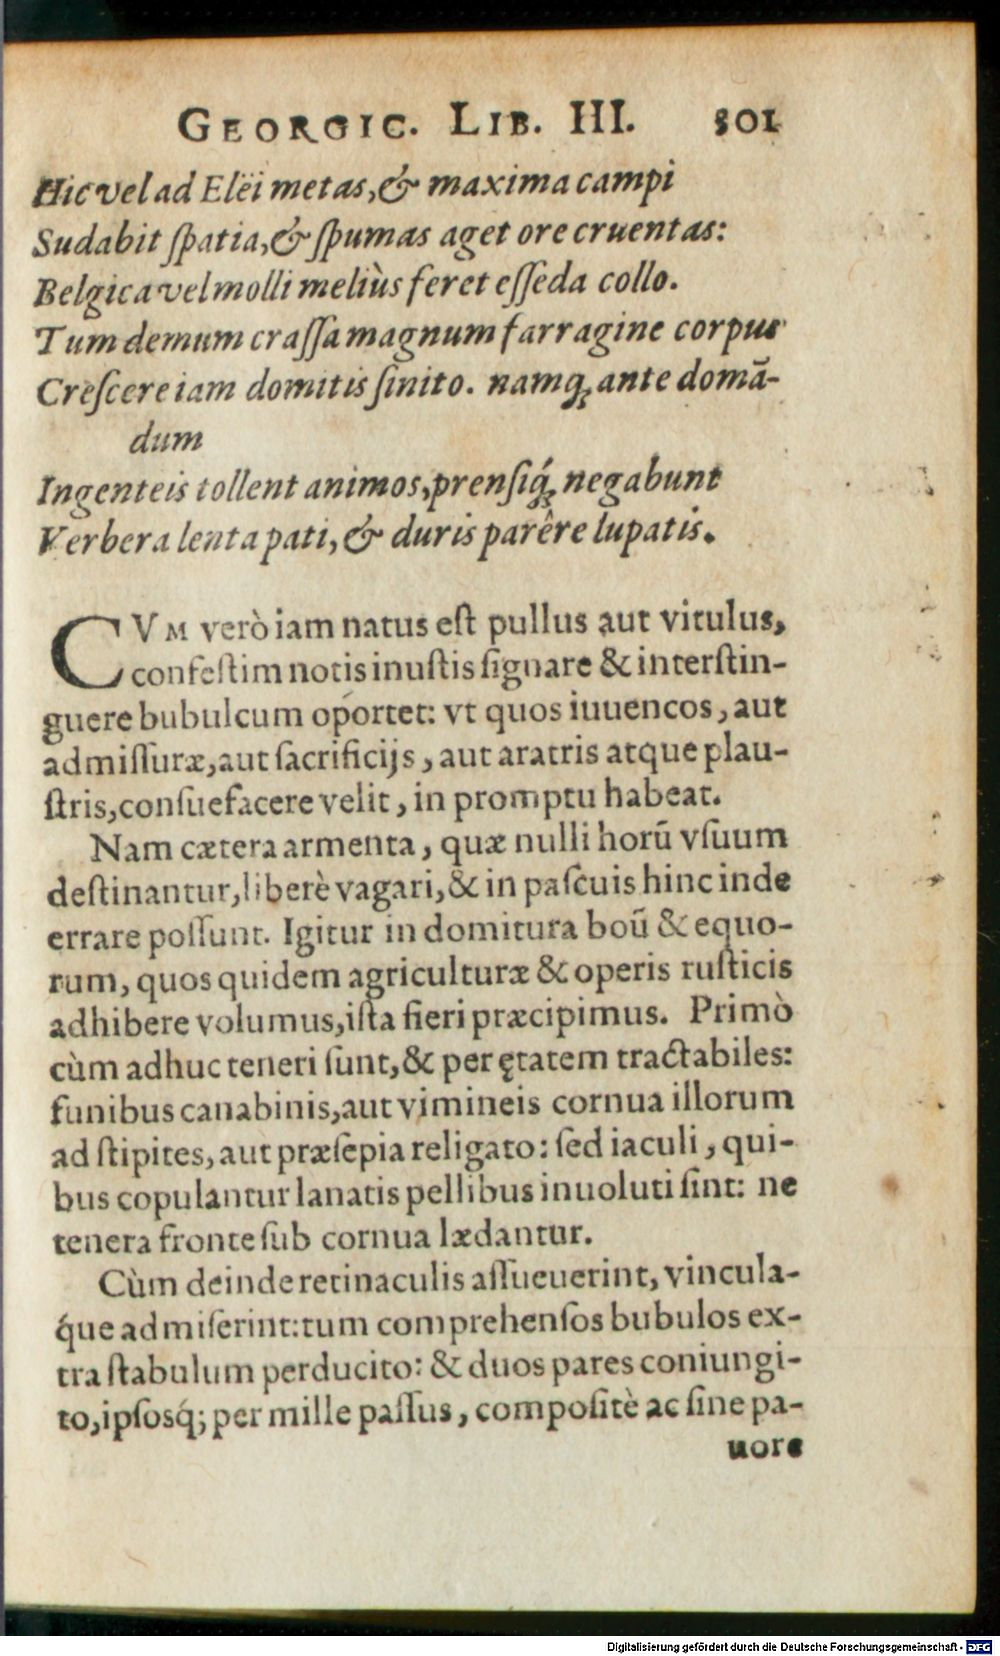 GEORGIC. LIB. III. 301
Hic vel ad Elëi metas, & maxima campi
Sudabit ſpatia, & ſpumas aget ore cruentas:
Belgica vel molli meliùs feret eſſeda collo.
Tum demum craſſa magnum farragine corpus
Creſcere iam domitis ſinito. namq; ante domā-
dum
Ingenteis tollent animos, prenſiq́; negabunt
Verbera lenta pati, & duris parêre lupatis.
CVM verò iam natus eſt pullus aut vitulus,
confeſtim notis inuſtis ſignare & interſtin-
guere bubulcum opórtet: vt quos iuuencos, aut
admiſſuræ, aut ſacrificijs, aut aratris atque plau-
ſtris, conſuefacere velit, in promptu habeat.
Nam cætera armenta, quæ nulli horū vſuum
deſtinantur, liberè vagari, & in paſcuis hinc inde
errare poſſunt. Igitur in domitura boū & equo-
rum, quos quidem agriculturæ & operis ruſticis
adhibere volumus, iſta fieri præcipimus. Primò
cùm adhuc teneri ſunt, & per ętatem tractabiles:
funibus canabinis, aut vimineis cornua illorum
ad ſtipites, aut præſepia religato: ſed iaculi, qui-
bus copulantur lanatis pellibus inuoluti ſint: ne
tenera fronte ſub cornua lædantur.
Cùm deinde retinaculis aſſueuerint, vincula-
q́ue admiſerint: tum comprehenſos bubulos ex-
tra ſtabulum perducito: & duos pares coniungi-
to, ipſosq́; per mille paſſus, compoſitè ac ſine pa-
uore
Digitalisierung gefördert durch die Deutsche Forschungsgemeinschaft - DFG